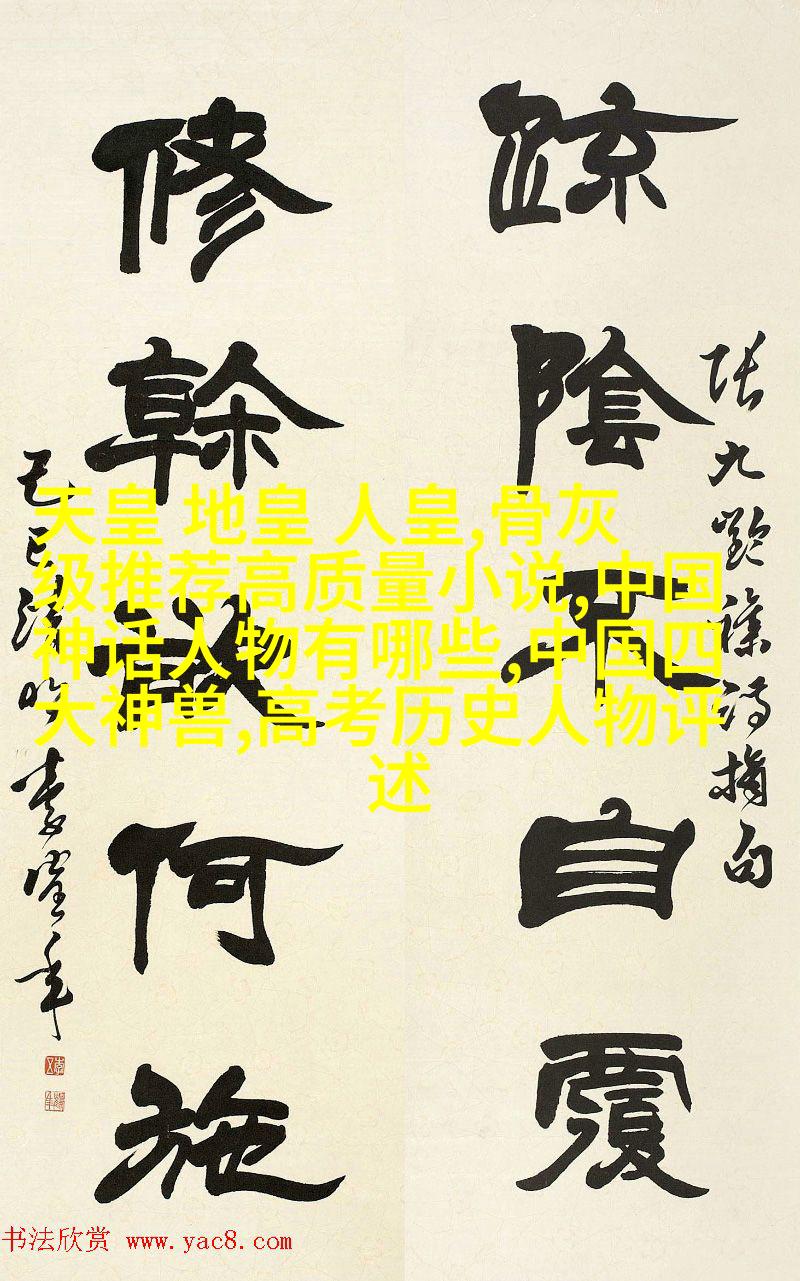 疎陰不自覆
張九齡雜詩摘句
修幹欲何施
己巳清明李鶴年
天皇 地皇 人皇,骨灰
级推荐高质量小说,中国
神话人物有哪些,中国四
大神兽,高考历史人物评
述
书法欣赏 www.yac8.com